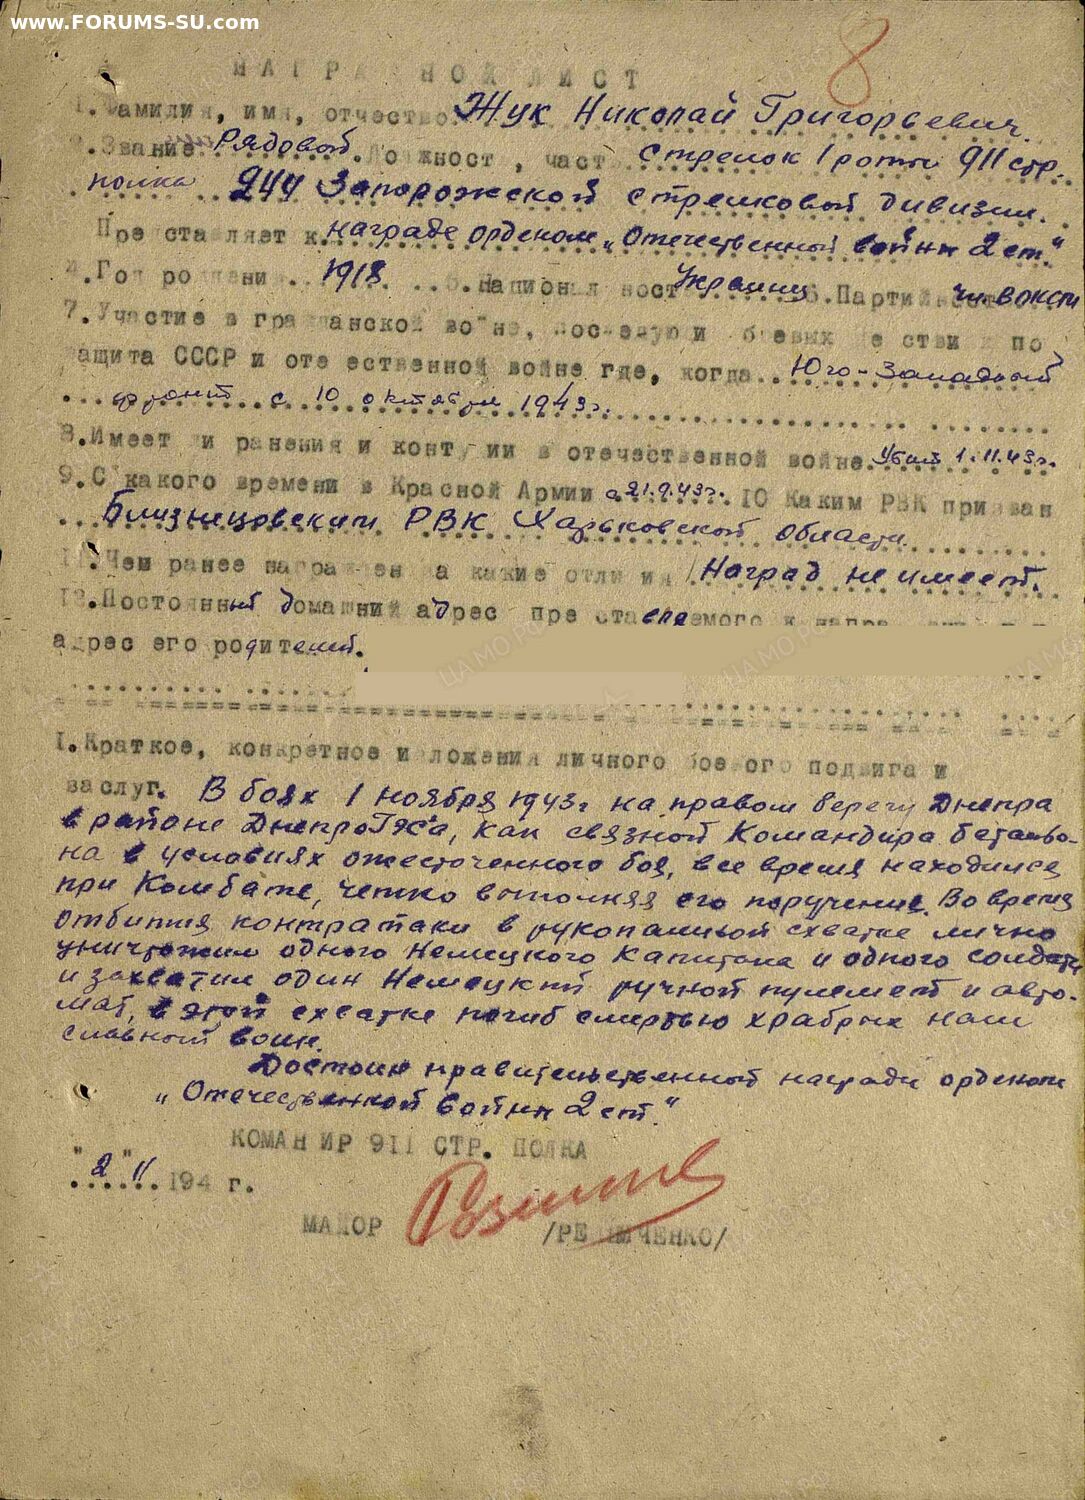 www.FORUMS-SU.com
8
НАГРАДНОЙ ЛИСТ
1.Фамилия, имя, отчество Жук Николай Григорьевич.
2.Звание Рядовой. Должность, часть стрелок 1 роты 911 стр.
полка 244 Запорожской стрелковой дивизии.
Представляет к награде орденом „Отечественной войны 2 ст."
4.Год рождения. 1918 5.Национальность Украинц 6.Партийность чл. ВЛКСМ
7.Участие в гражданской войне, последующих боевых действиях по
защита СССР и отечественной войне где, когда. Юго-Западный
фронт с 10 октября 1943г.
8.Имеет ли ранения и контузии в отечественной войне. Убит 1.11.43г.
9.С какого времени в Красной Армии с 21.9.43г. 10 Каким РВК призван
Близнецовским РВК Харьковской области.
11.Чем ранее награжден за какие отличия Наград не имеет.
12.Постоянный домашний адрес представляемого к
адрес его родителей.
1.Краткое, конкретное изложения личного боевого подвига и
заслуг. В боях 1 ноября 1943г на правом берегу Днепра
в районе ДнепроГЭС'а, как связной Командира батальо-
на в условиях ожесточенного боя, все время находился
при Комбате, четко выполняя его поручения. Во время
отбития контратаки в рукопашной схватке лично
уничтожил одного Немецкого Капитана и одного солдата
и захватил один Немецкий ручной пулемет и авто-
мат, в этой схватке погиб смертью храбрых наш
славный воин.
Достоин правительственной награды орденом
„Отечественной войны 2 ст."
КОМАНДИР 911 СТР. ПОЛКА
"2" 11 194 г.
МАЙОР /РЕ ЧЕНКО/